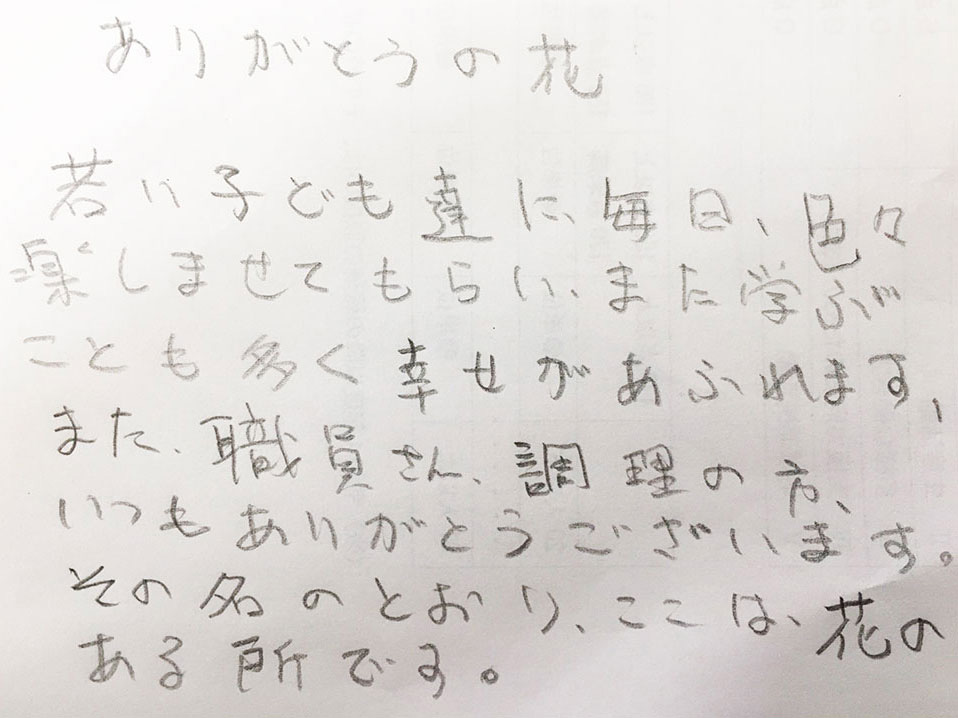 ありがとうの花
若い子ども達に、毎日、色々
楽しませてもらい、また学ぶ
ことも多く幸せがあふれます、
また、職員さん、調理の方、
いつもありがとうございます。
その名のとおり、ここは、花の
ある所です。